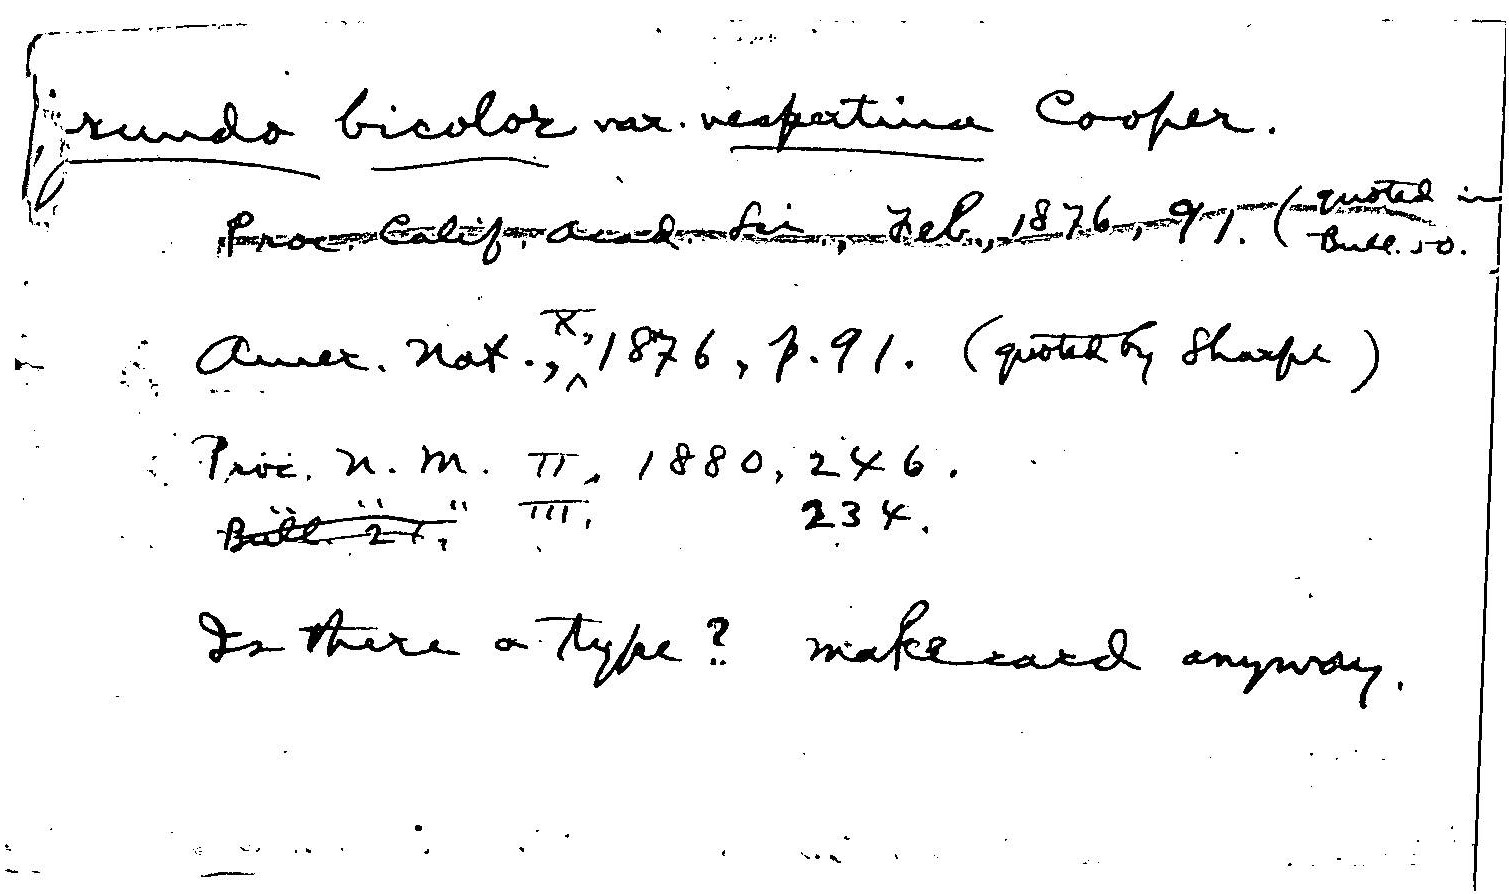 irundo bicolor var. vespertina Cooper.
Proc. Calif. Acad. Sci., Feb., 1876, 91. (quoted in Bull. 50.
Amer. Nat., X, 1876, p. 91. (quoted by Sharpe)
Proc. N. M. II, 1880, 246.
" " " III, 234.
Bull. 21,
Is there a type? make card anyway.